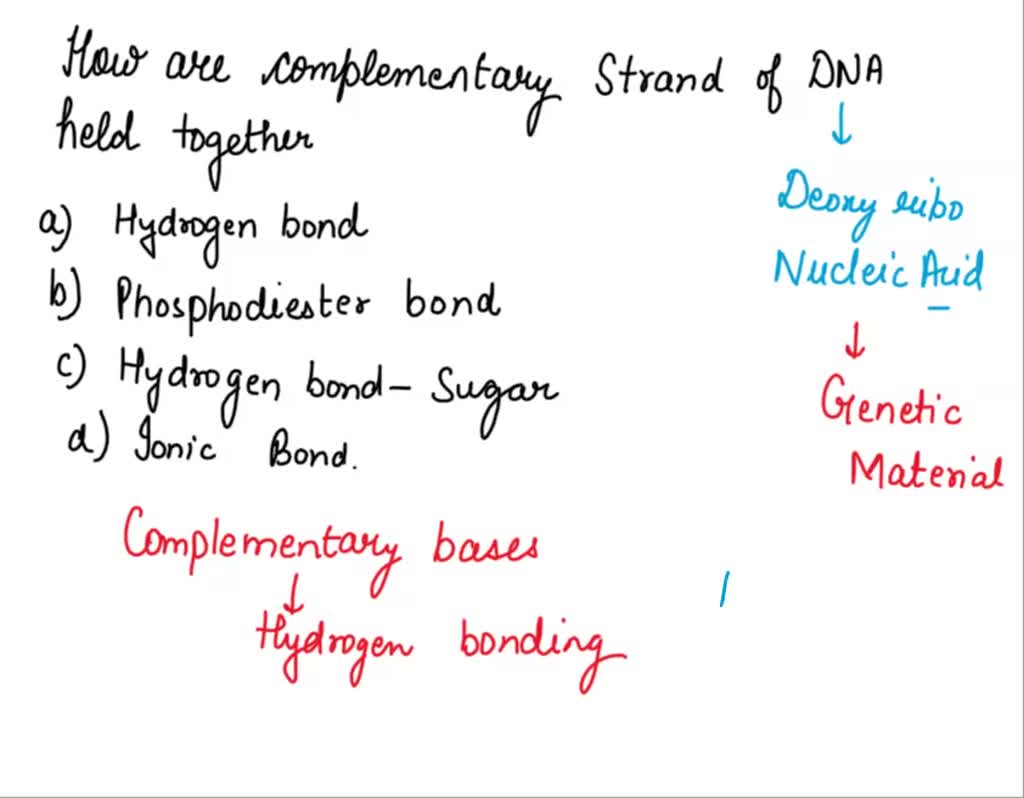 How are complementary Strand of DNA
held together
↓
Deoxy ribo
Nucleic Acid
↓
Genetic
Material
a) Hydrogen bond
b) Phosphodiester bond
c) Hydrogen bond - Sugar
d) Ionic Bond.
Complementary bases
↓
Hydrogen bonding